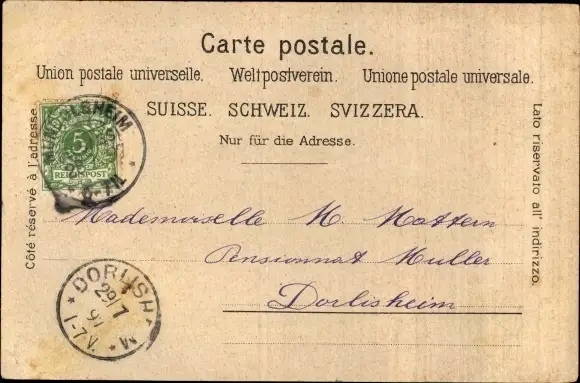 Carte postale.
Union postale universelle. Weltpostverein. Unione postale universale.
SUISSE. SCHWEIZ. SVIZZERA.
Nur für die Adresse.
Côté réservé à l'adresse.
Lato riservato all' indirizzo.
MUNDOLSHEIM
5
REICHSPOST
Mademoiselle M. Mattern
Pensionnat Muller
Dorlisheim
DORLISH
29/7
97
1-7 V.